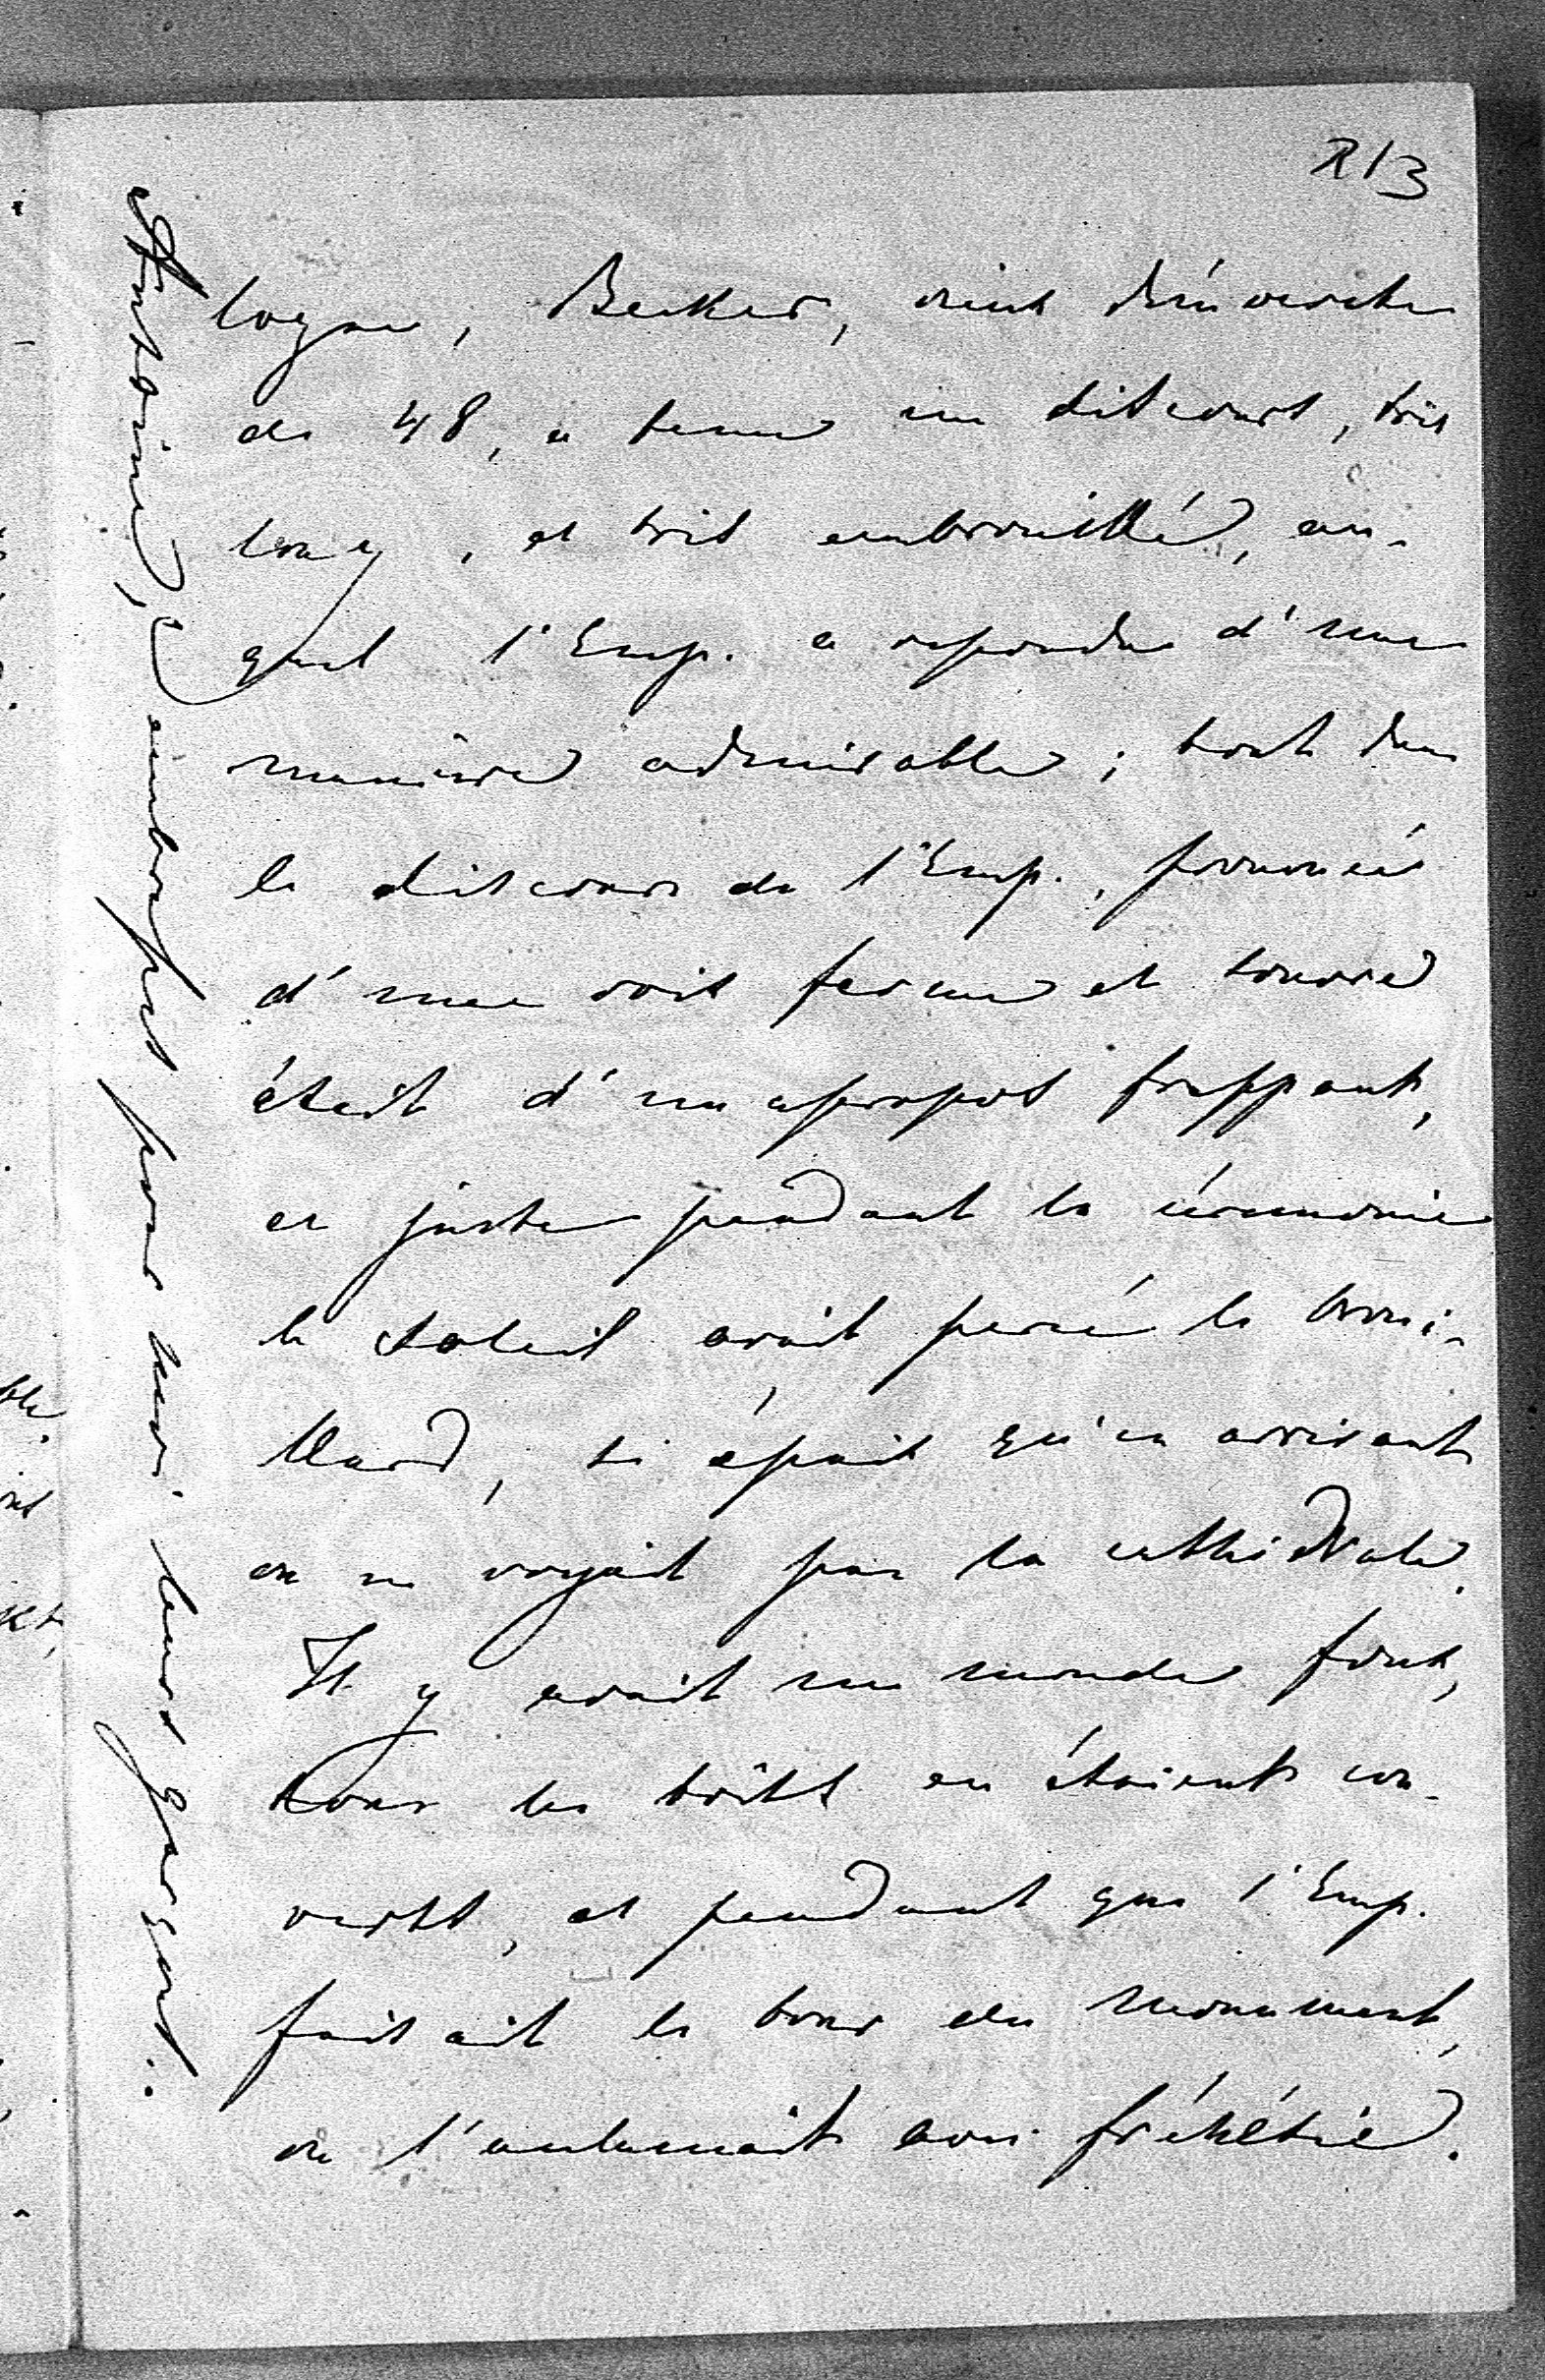 213
logne, Becker, vieux démocrate
de 48, a tenu un discours, très
long, et très embrouillé, au-
quel l'Emp. a repondu d'une
manière admirable; tout dans
le discours de l'Emp., prononcé
d'une voix ferme et sonore
était d'un apropos frappant,
et juste pendant la cérémonie
le soleil avait percé le brouil-
llard, si épais qu'en arrivant
on ne voyait pas la cathédrale.
Il y avait un monde fou,
tous les toits en étaient cou-
verts, et pendant que l'Emp.
faisait le tour du monument,
on l'acclamait avec frénésie.
Antoine, embrasses pour moi leurs garçons.